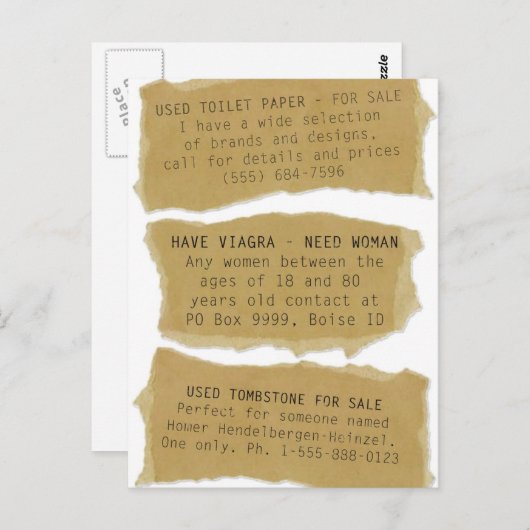 Place
zzle
USED TOILET PAPER - FOR SALE
I have a wide selection
of brands and designs,
call for details and prices
(555) 684-7596
HAVE VIAGRA - NEED WOMAN
Any women between the
ages of 18 and 80
years old contact at
PO Box 9999, Boise ID
USED TOMBSTONE FOR SALE
Perfect for someone named
Homer Hendelbergen-Heinzel.
One only. Ph. 1-555-888-0123